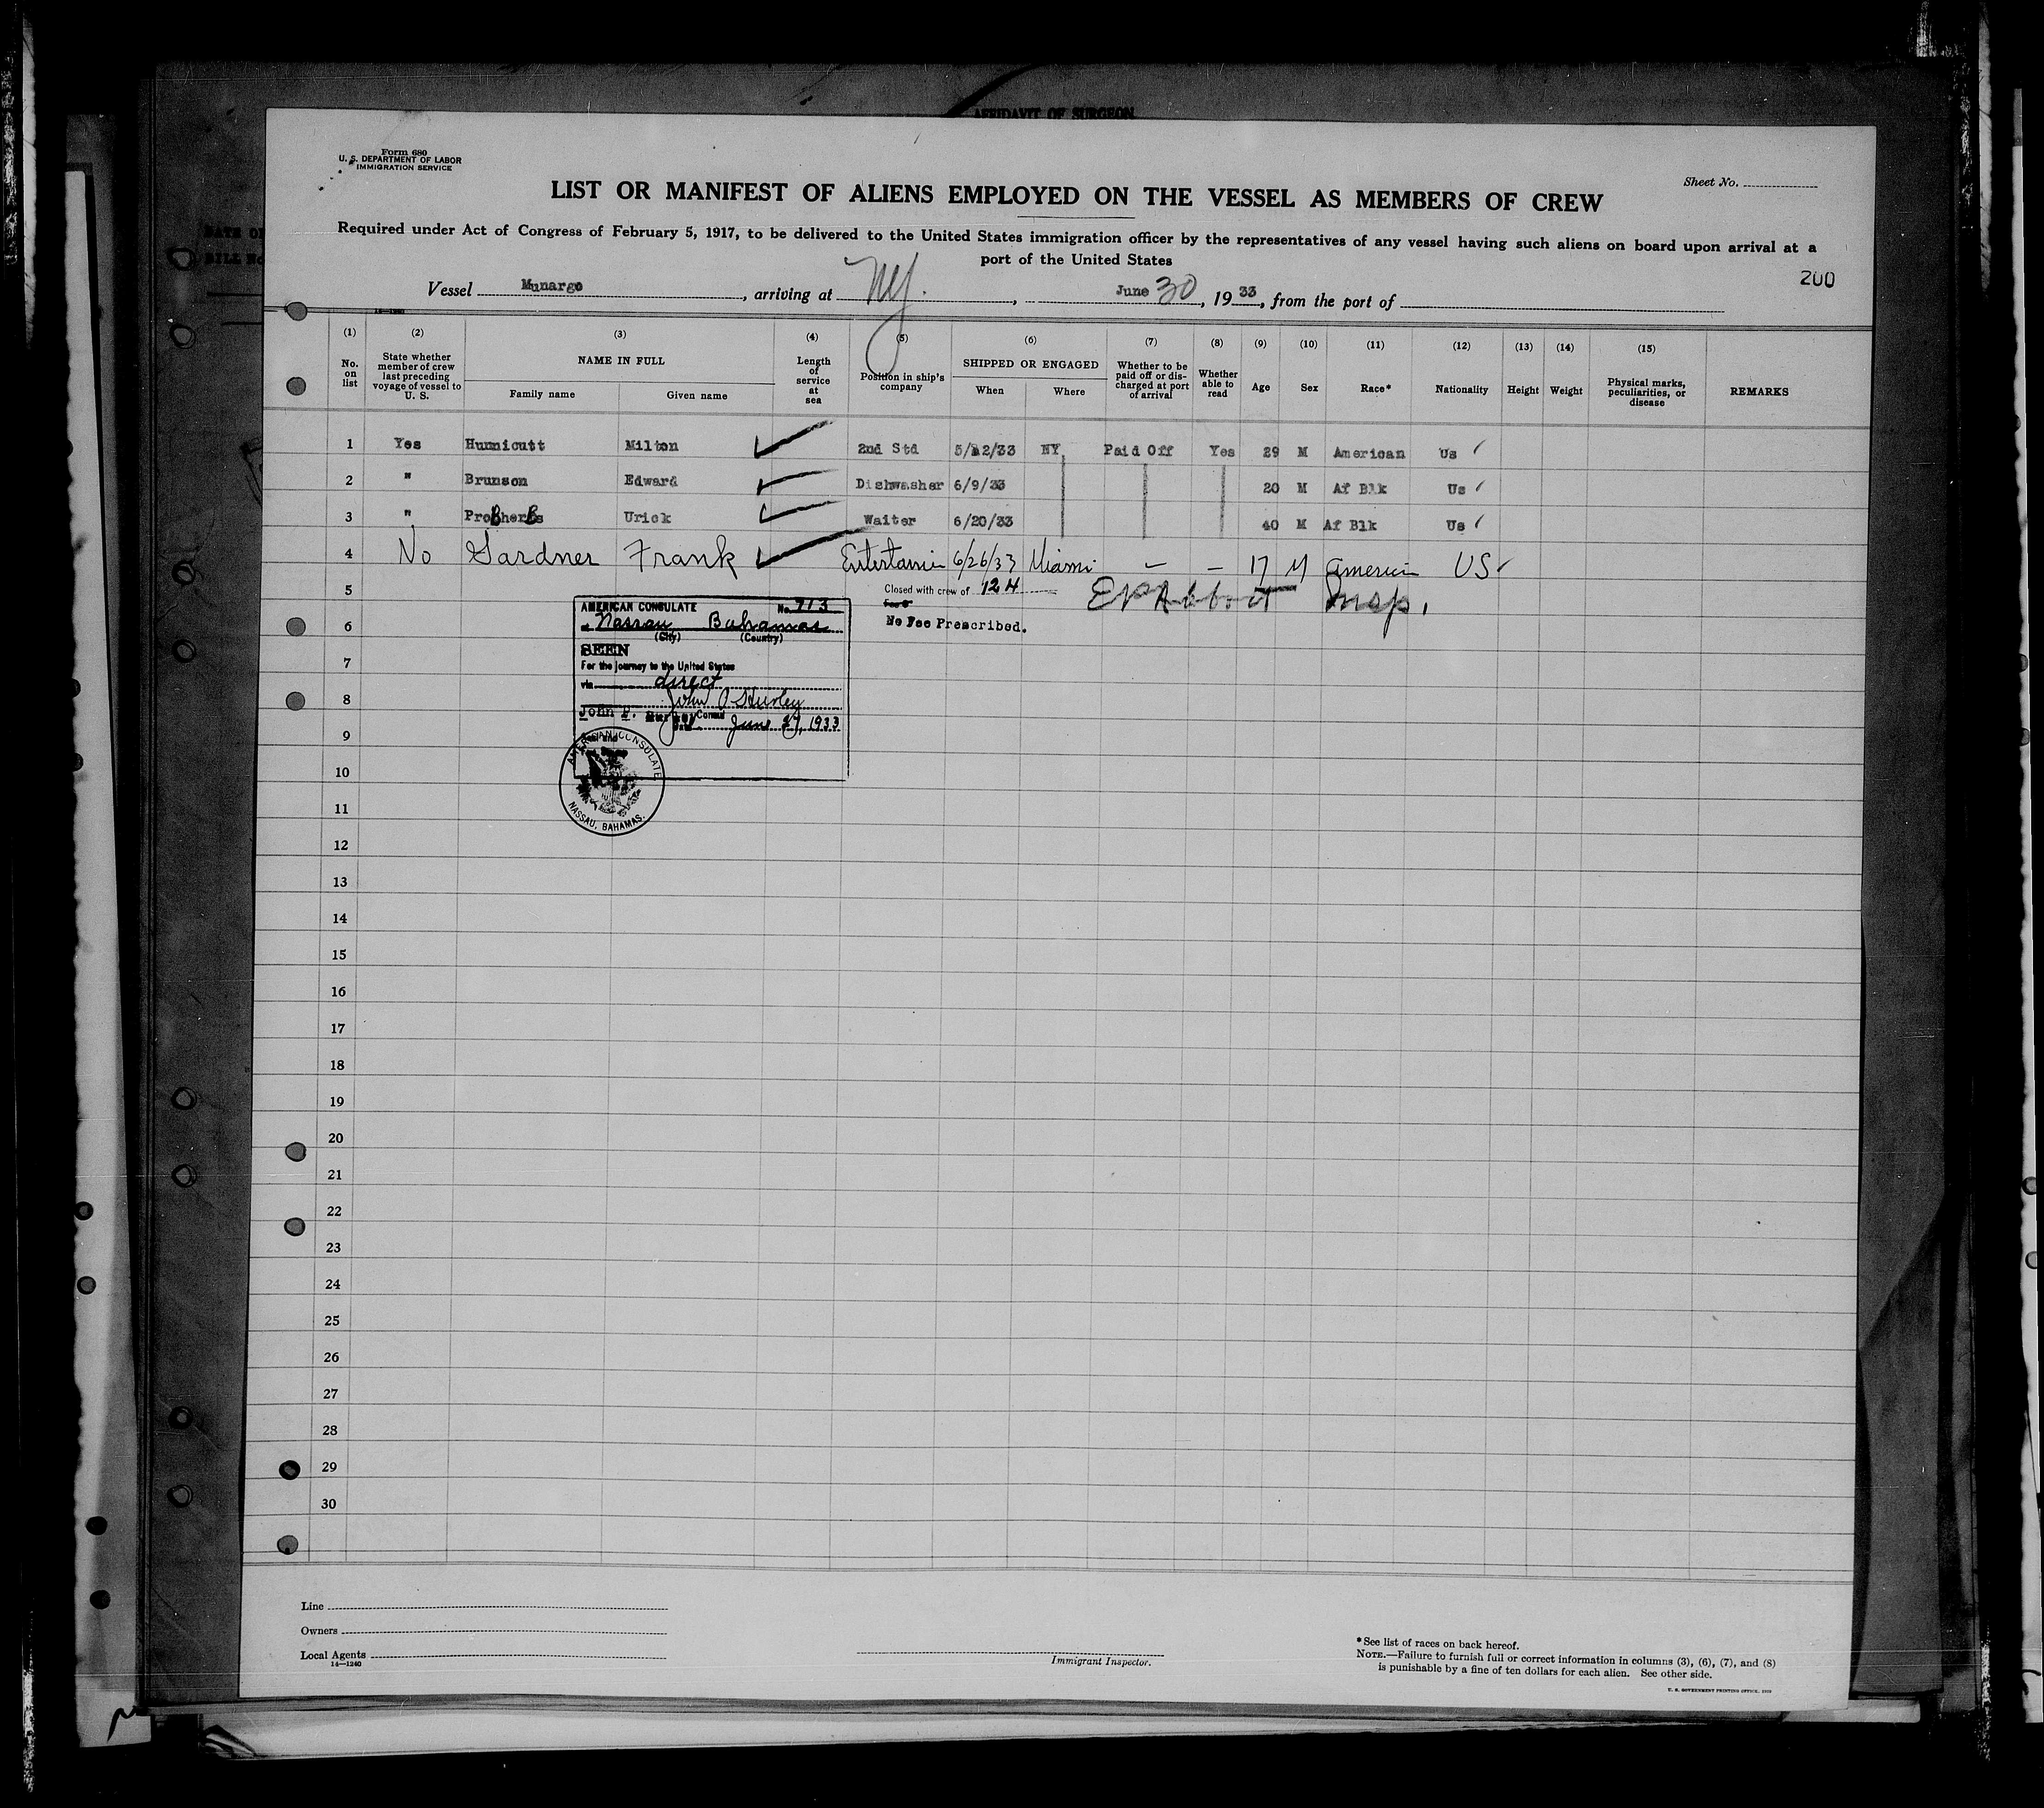 AFFIDAVIT OF SURGEON
Form 680
U. S. DEPARTMENT OF LABOR
IMMIGRATION SERVICE
Sheet No.
LIST OR MANIFEST OF ALIENS EMPLOYED ON THE VESSEL AS MEMBERS OF CREW
Required under Act of Congress of February 5, 1917, to be delivered to the United States immigration officer by the representatives of any vessel having such aliens on board upon arrival at a
port of the United States
200
Vessel Munargo, arriving at NY., June 30, 1933, from the port of
(1) (2) (3) (4) (5) (6) (7) (8) (9) (10) (11) (12) (13) (14) (15)
No. on list State whether member of crew last preceding voyage of vessel to U. S. NAME IN FULL Family name Given name Length of service at sea Position in ship's company SHIPPED OR ENGAGED When Where Whether to be paid off or discharged at port of arrival Whether able to read Age Sex Race* Nationality Height Weight Physical marks, peculiarities, or disease REMARKS
1 Yes Hunnicutt Milton 2nd Std 5/22/33 NY Paid Off Yes 29 M American Us
2 " Brunson Edward Dishwasher 6/9/33 20 M Af Blk Us
3 " Urick Waiter 6/20/33 40 M Af Blk Us
4 No Gardner Frank Entertainer 6/26/33 Miami – – 17 M American US
5 Closed with crew of 124 Insp.
No Fee Prescribed.
AMERICAN CONSULATE No. 713
at Nassau Bahamas
(City) (Country)
SEEN
For the journey to the United States
via direct
John P. Hurley
John P. Hurley Consul
Date June 27, 1933
AMERICAN CONSULATE
NASSAU, BAHAMAS.
6
7
8
9
10
11
12
13
14
15
16
17
18
19
20
21
22
23
24
25
26
27
28
29
30
Line
Owners
Local Agents
14—1240
Immigrant Inspector.
*See list of races on back hereof.
NOTE.—Failure to furnish full or correct information in columns (3), (6), (7), and (8)
is punishable by a fine of ten dollars for each alien. See other side.
U. S. GOVERNMENT PRINTING OFFICE